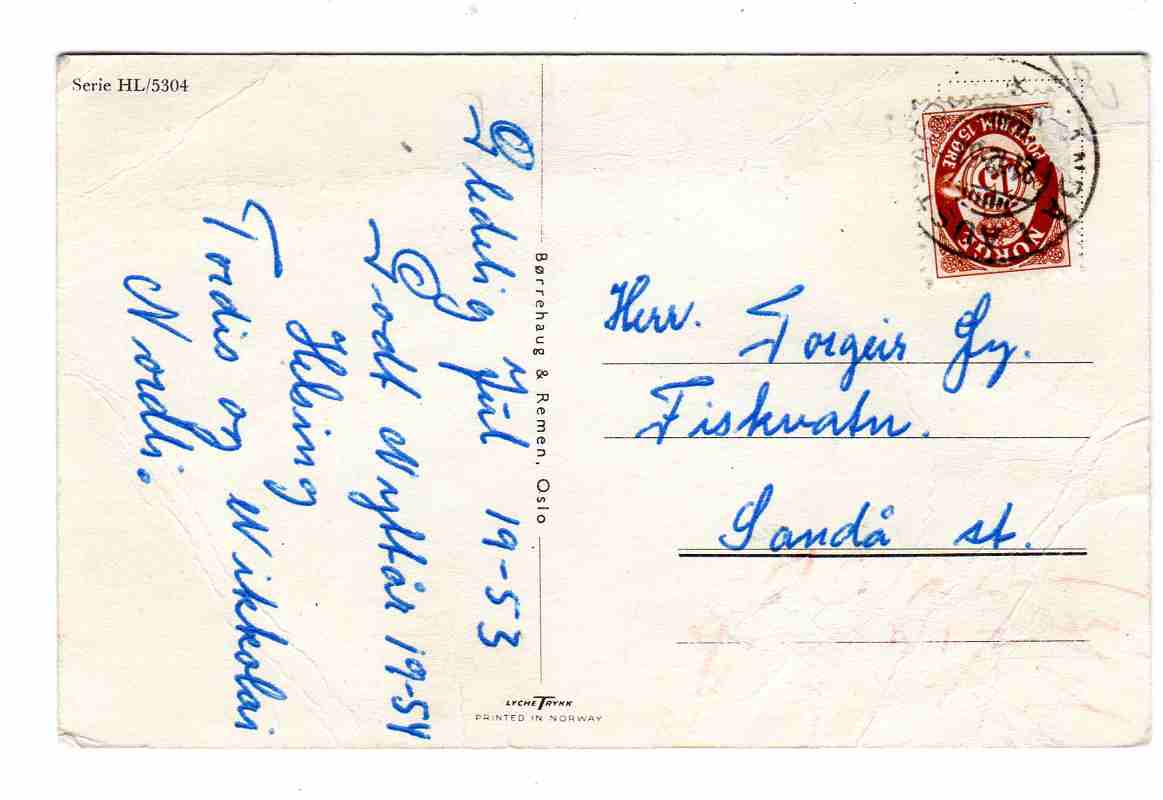 Serie HL/5304
Gledelig Jul 19-53
Godt Nyttår 19-54
Helsing
Tordis og Nikkolai
Nordli.
Børrehaug & Remen, Oslo
NORGE
POSTFRIM. 15 ØRE
15
Herr. Torgeir Gy.
Fiskvatn.
Sandå st.
LYCHE TRYKK
PRINTED IN NORWAY